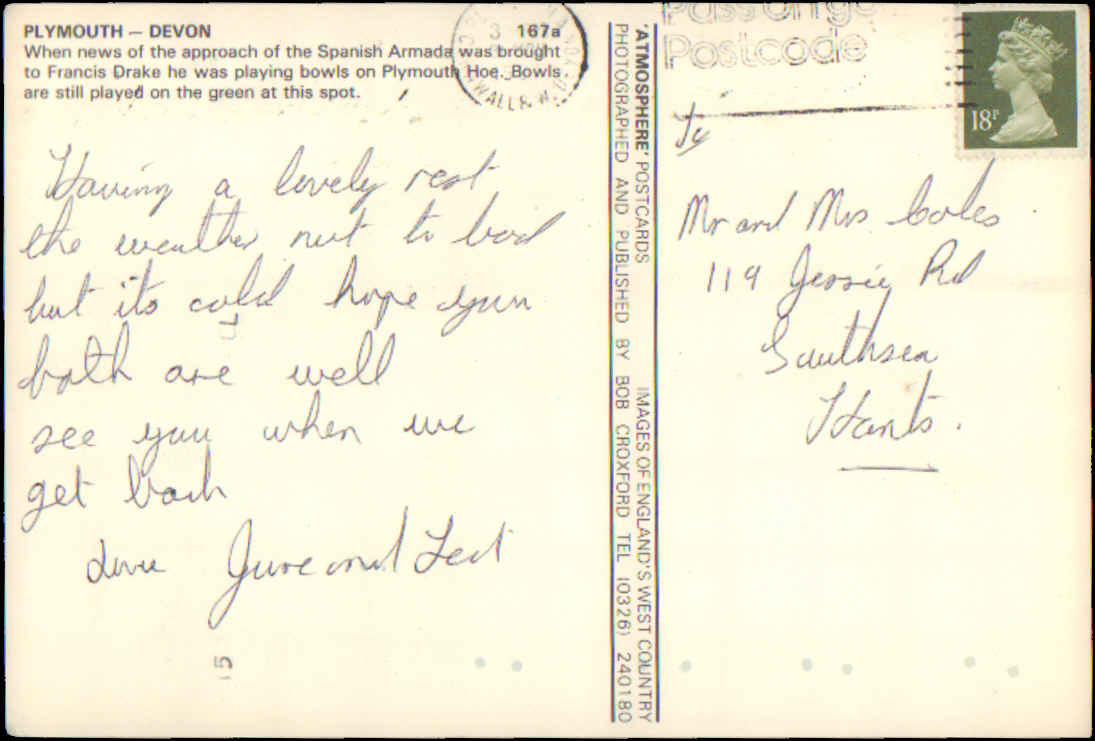 PLYMOUTH — DEVON 167a
When news of the approach of the Spanish Armada was brought
to Francis Drake he was playing bowls on Plymouth Hoe. Bowls
are still played on the green at this spot.
Having a lovely rest
the weather not to bad
but its cold hope you
both are well
see you when we
get back
Love June and
'ATMOSPHERE' POSTCARDS IMAGES OF ENGLAND'S WEST COUNTRY
PHOTOGRAPHED AND PUBLISHED BY BOB CROXFORD TEL (0326) 240180
Pass on
Postcode
18P
To
Mr and Mrs Coles
119 Jessie Rd
Southsea
Hants.